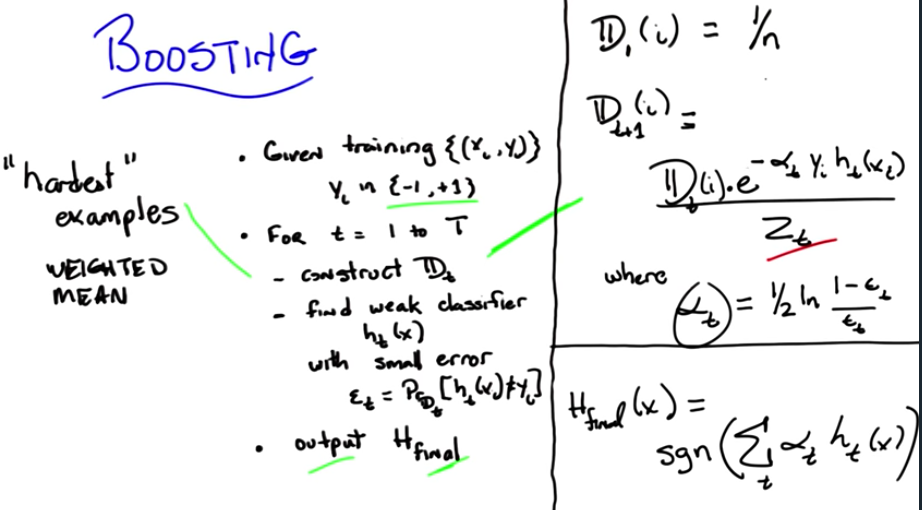 BOOSTING
"hardest"
examples
WEIGHTED
MEAN
• Given training {(x_i, y_i)}
y_i in {-1, +1}
• For t = 1 to T
- construct D_t
- find weak classifier
h_t(x)
with small error
ε_t = P_{D_t}[h_t(x_i)≠y_i]
• output H_final
D_1(i) = 1/n
D_{t+1}(i) =
D_t(i)·e^{-α_t y_i h_t(x_i)}
Z_t
where
α_t = 1/2 ln (1-ε_t)/ε_t
H_final(x) =
sgn(∑_t α_t h_t(x))